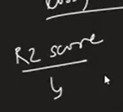 R2 score
y